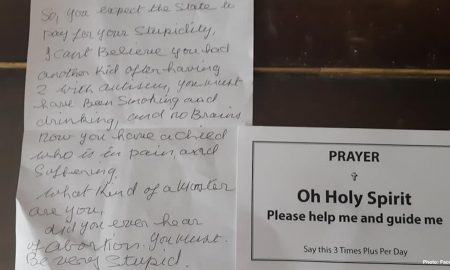 So, you expect the State to
pay for your Stupidity,
I cant Believe you had
another kid after having
2 with autism, you must
have Been Smoking and
drinking, and no Brains
Now you have a child
who is in pain and
Suffering.
What Kind of a Monster
are you,
did you ever hear
of abortion. You must
Be very Stupid.
PRAYER
✞
Oh Holy Spirit
Please help me and guide me
Say this 3 Times Plus Per Day
Photo: Face